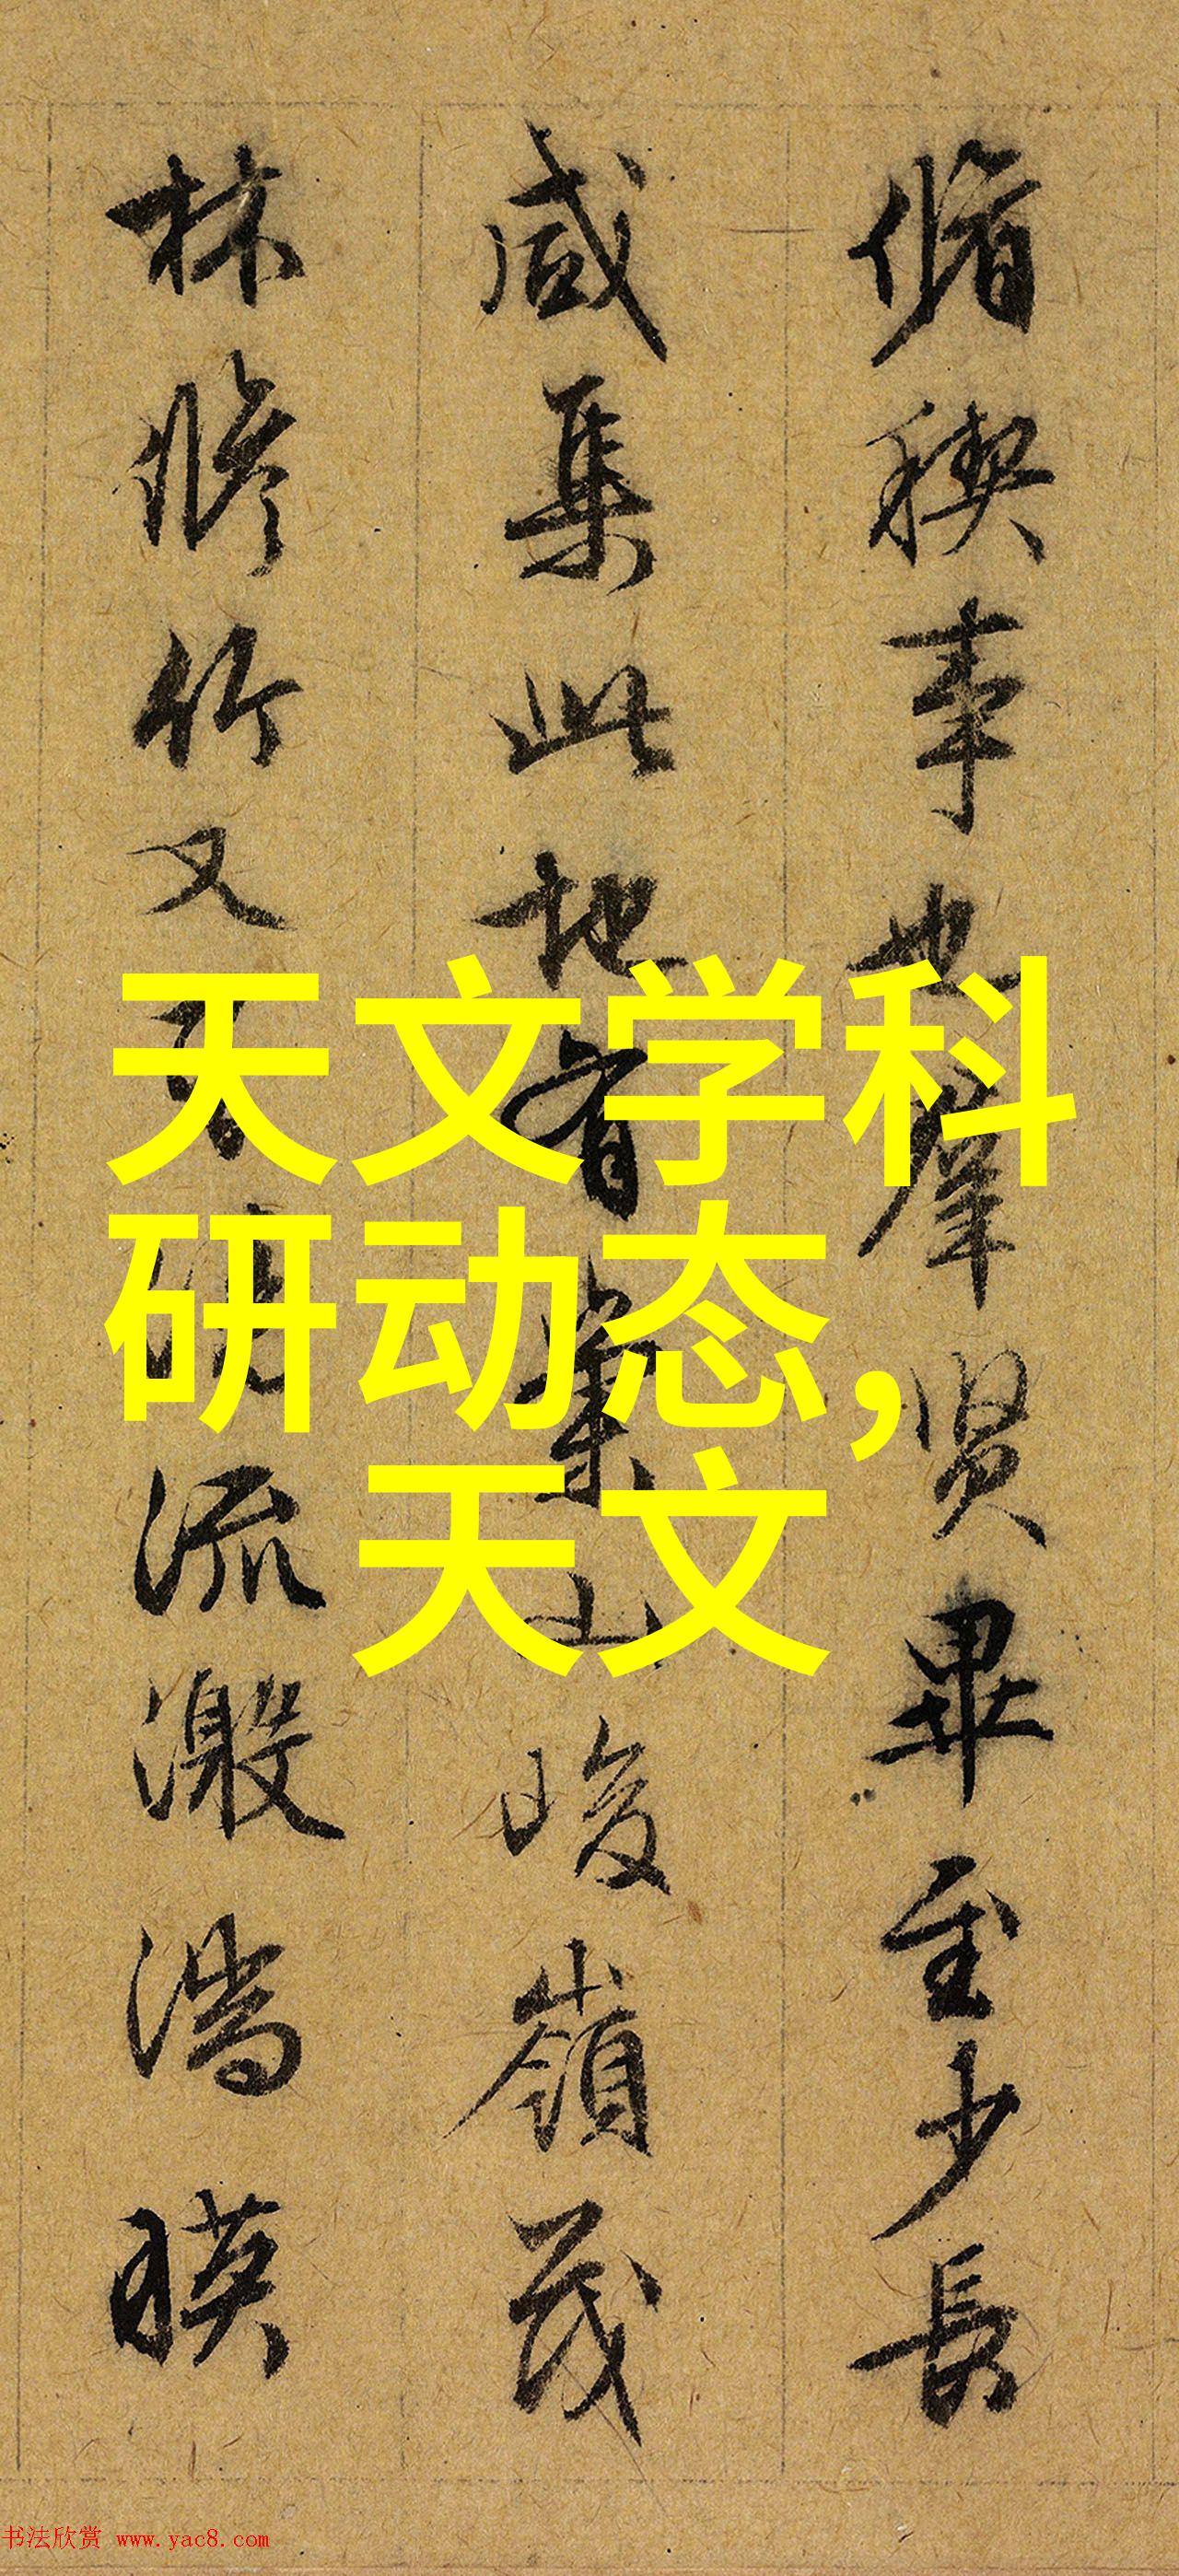 脩稧事也羣賢畢至少長
咸集此地有崇山峻嶺茂
林脩竹又有清流激湍暎
天文学科
研动态,
天文
书法欣赏 www.yac8.com